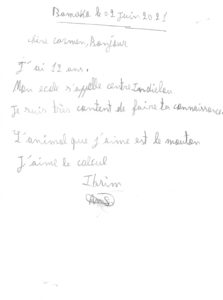 Bamako le 02 Juin 2021
chère carmen, Bonjour
J'ai 12 ans.
Mon ecole s'appelle centre
Je suis très content de faire ta connaissance
L'animal que j'aime est le mouton
J'aime le calcul